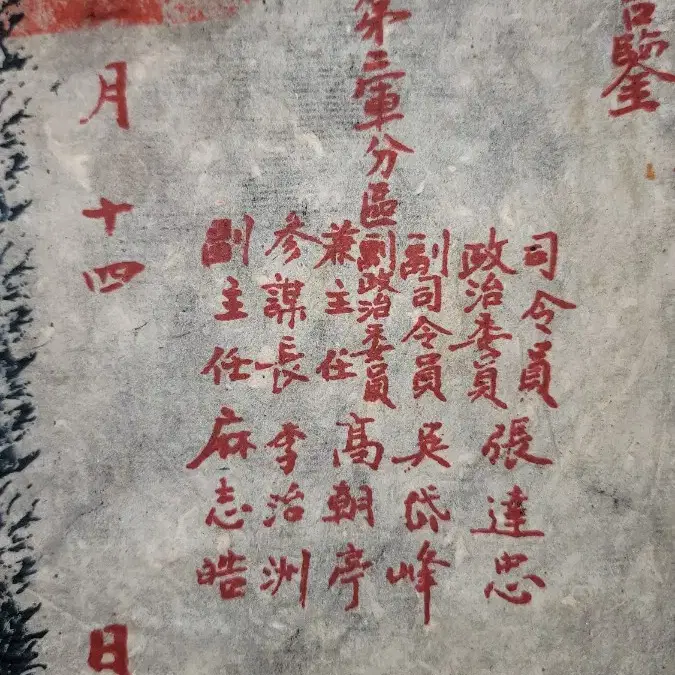 鑒
第三軍分區
司令員
政治委員 張達忠
副司令員 吴岱峰
副政治委員
兼主任 高朝亭
参謀長 李治洲
副主任 麻志皓
月十四日